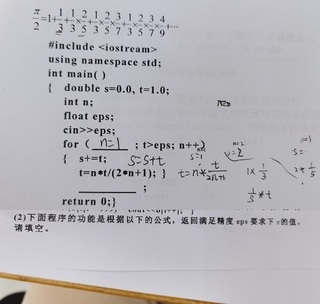 π/2=1+1/3+1/3×2/5+1/3×2/5×3/7+1/3×2/5×3/7×4/9+…
#include <iostream>
using namespace std;
int main( )
{ double s=0.0, t=1.0;
int n; n=0
float eps;
cin>>eps;
for ( n=1 ; t>eps; n++)
{ s+=t; s=s+t
t=n*t/(2*n+1); } t=n*t/2n+1 1×1/3
; 1/3*t
return 0;}
(2)下面程序的功能是根据以下的公式，返回满足精度 eps 要求下π的值，
请填空。